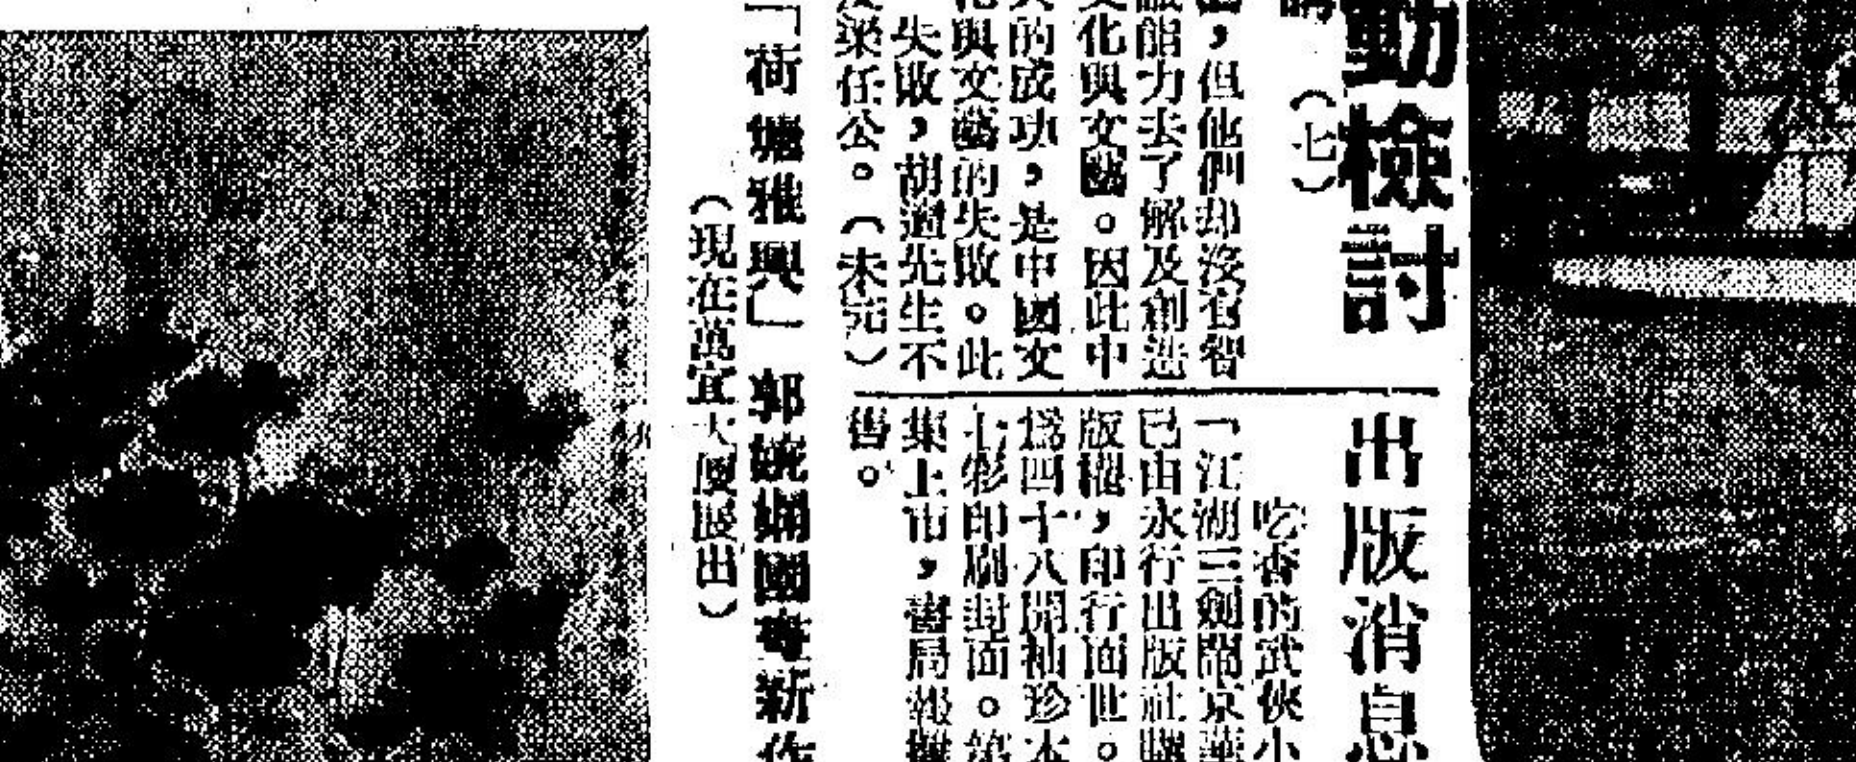 動檢討
（七）
，但他們却沒有智
能力去了解及創造
文化與文藝。因此中
的成功，是中國文
與文藝的失敗。此
失敗，胡適先生不
梁任公。（未完）
出版消息
吃香的武俠小
「江湖三劍鬧京華
已由永行出版社
版權，印行面世。
爲四十八開袖珍本
七彩印刷封面。第
集上市，書局報攤
售。
「荷塘雅興」郭 新作
（現在萬宜大廈展出）